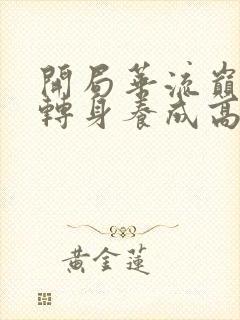 開局華流巔
轉身養成高
黃金蓮